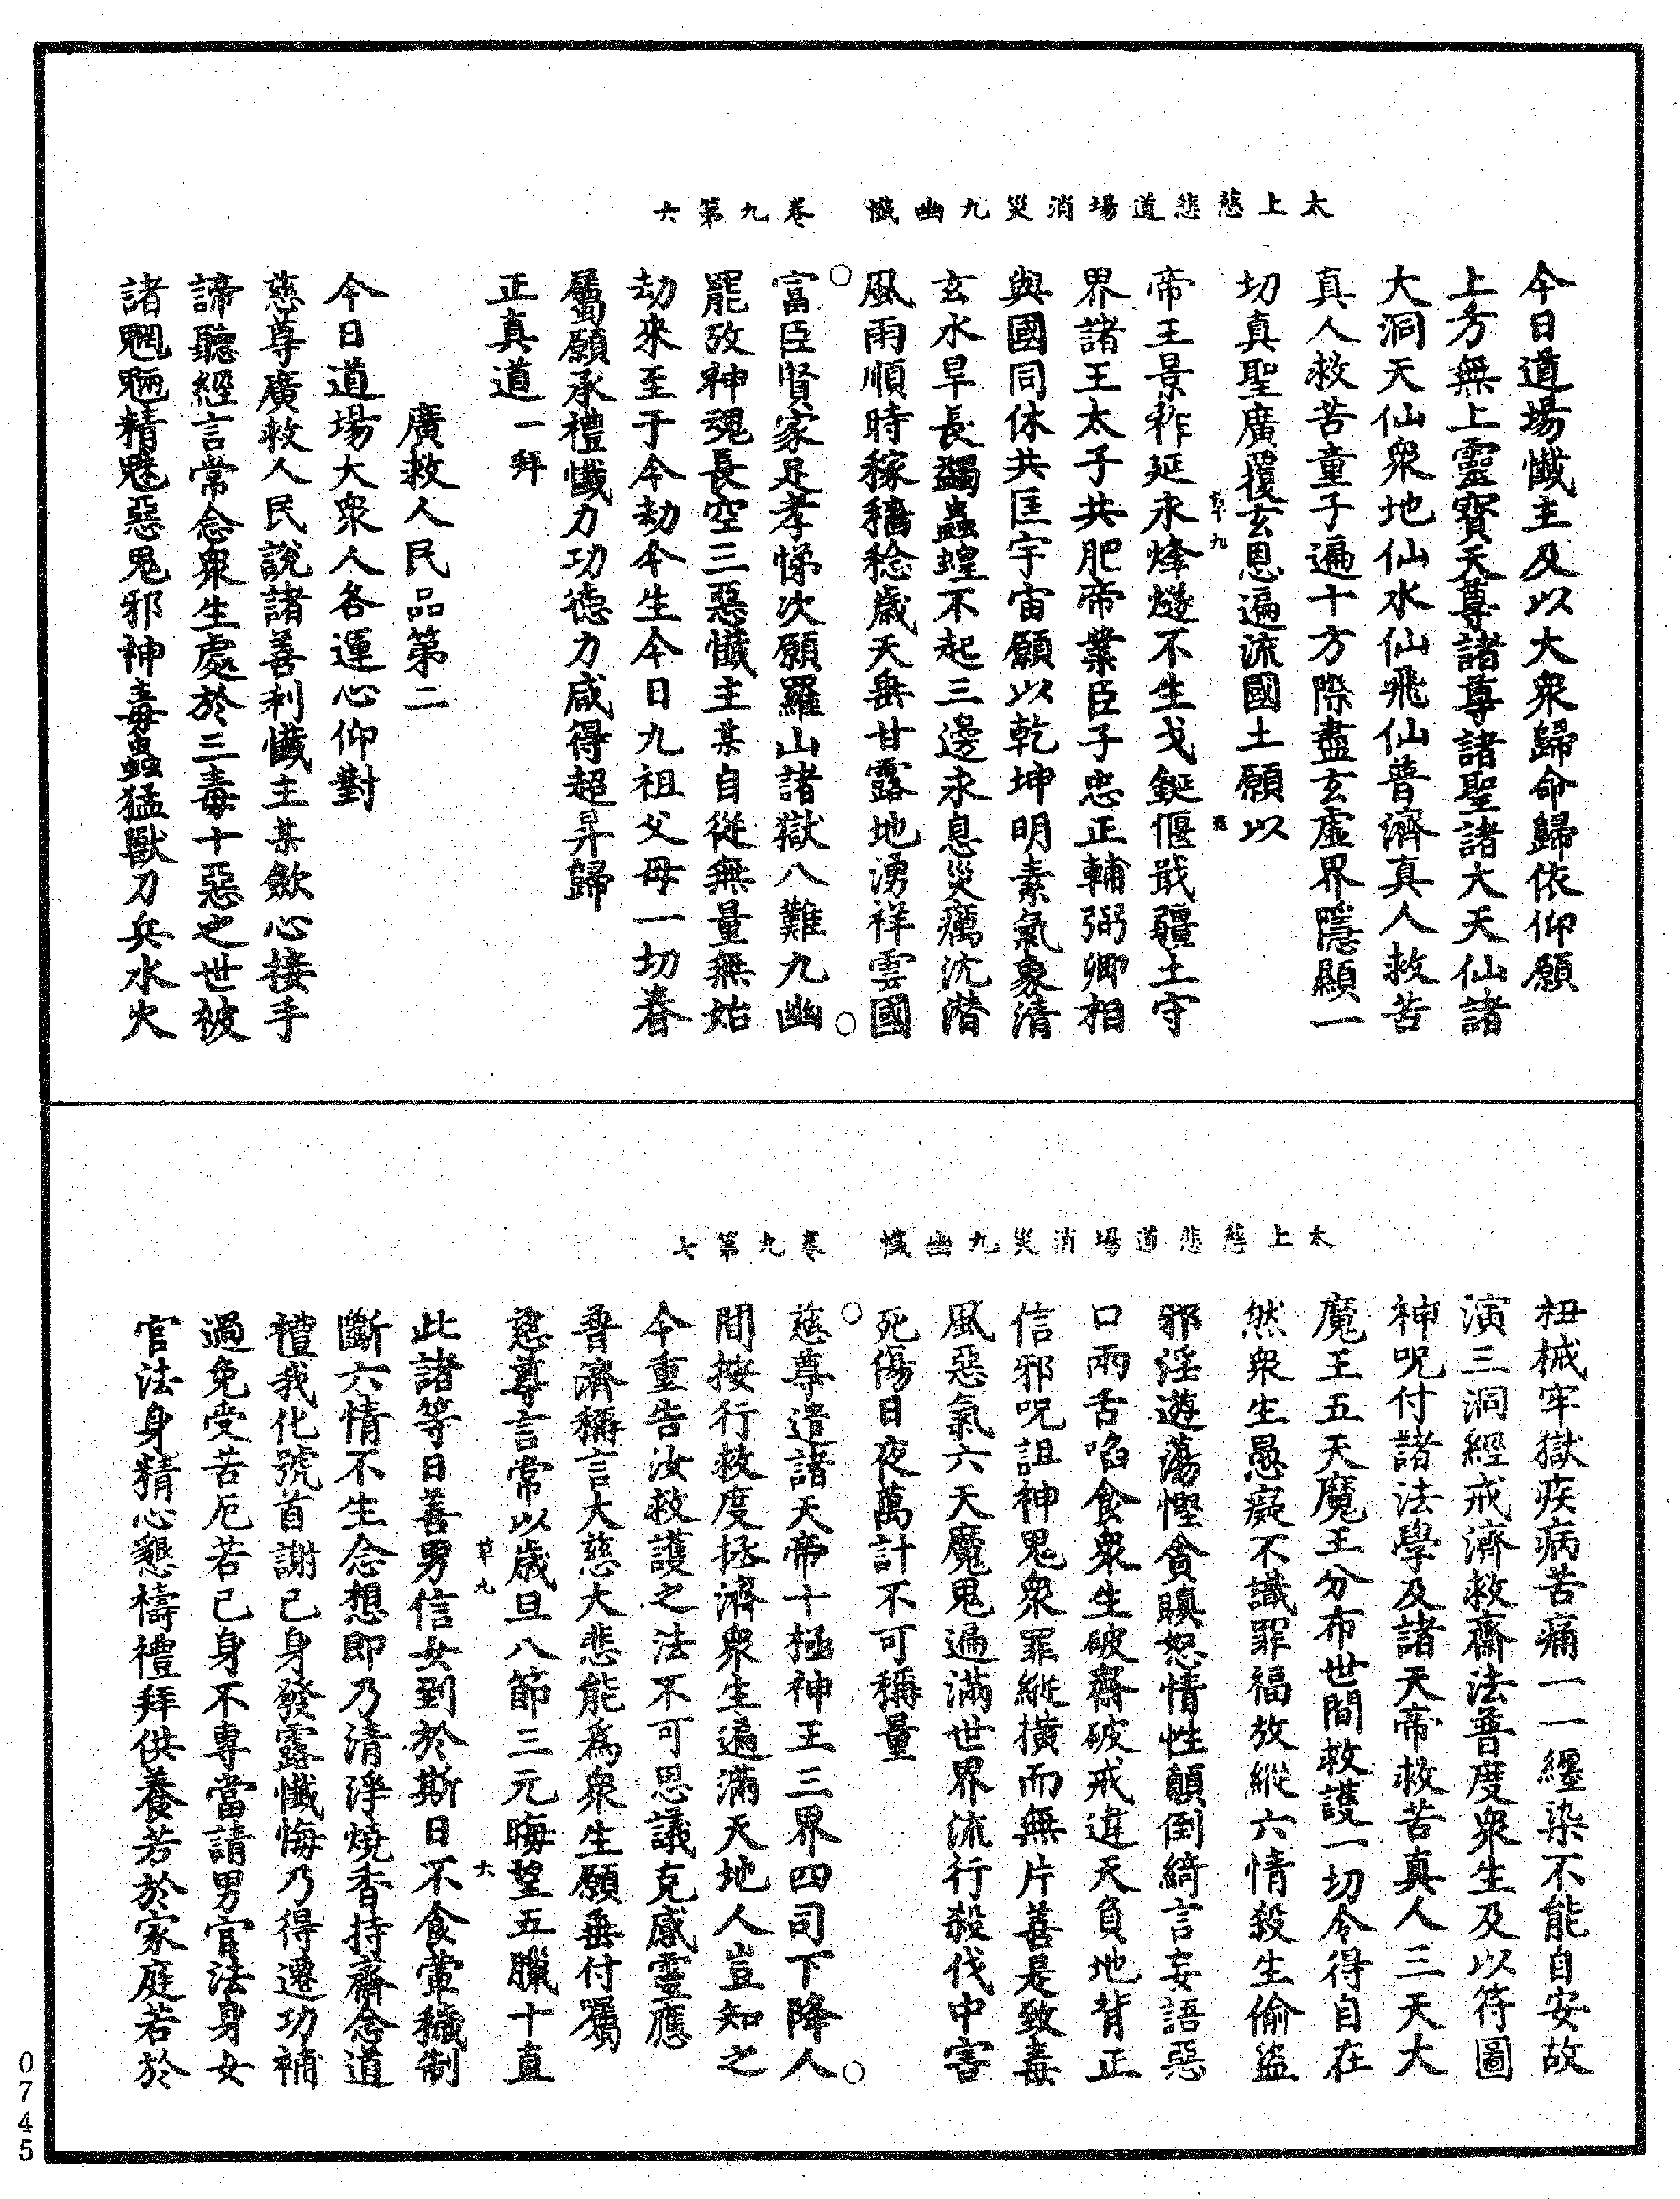 太上慈悲道場消災九幽懺　卷九第六
今日道場懺主及以大衆歸命歸依仰願
上方無上靈寶天尊諸尊諸聖諸大天仙諸
大洞天仙衆地仙水仙飛仙普濟真人救苦
真人救苦童子遍十方際盡玄虛界隱顯一
切真聖廣覆玄恩遍流國土願以
帝王景祚延永烽燧不生戈鋋偃戢疆土守
界諸王太子共肥帝業臣子忠正輔弼卿相
與國同休共匡宇宙願以乾坤明素氣象清
玄水旱長蠲蟲蝗不起三邊永息災癘沈潛
風雨順時稼穡稔歲天垂甘露地湧祥雲國
富臣賢家足孝悌次願羅山諸獄八難九幽
罷攷神魂長空三惡懺主某自從無量無始
劫來至于今劫今生今日九祖父母一切眷
屬願承禮懺力功德力咸得超昇歸
正真道一拜
廣救人民品第二
今日道場大衆人各運心仰對
慈尊廣救人民說諸善利懺主某歛心接手
諦聽經言常念衆生處於三毒十惡之世被
諸魍魎精魅惡鬼邪神毒蟲猛獸刀兵水火
太上慈悲道場消災九幽懺　卷九第七
杻械牢獄疾病苦痛一一纒染不能自安故
演三洞經戒濟救齋法普度衆生及以符圖
神呪付諸法學及諸天帝救苦真人三天大
魔王五天魔王分布世間救護一切令得自在
然衆生愚癡不識罪福放縱六情殺生偷盜
邪淫遊蕩慳貪瞋怒情性顛倒綺言妄語惡
口兩舌啗食衆生破齋破戒違天負地背正
信邪呪詛神鬼衆罪縱橫而無片善是致毒
風惡氣六天魔鬼遍滿世界流行殺伐中害
死傷日夜萬計不可稱量
慈尊遣諸天帝十極神王三界四司下降人
間按行救度拯濟衆生遍滿天地人豈知之
今重告汝救護之法不可思議克感靈應
普濟稱言大慈大悲能爲衆生願垂付囑
慈尊言常以歲旦八節三元晦望五臘十直
此諸等日善男信女到於斯日不食葷穢制
斷六情不生念想即乃清淨燒香持齋念道
禮我化號首謝己身發露懺悔乃得遷功補
過免受苦厄若己身不專當請男官法身女
官法身精心懇禱禮拜供養若於家庭若於
0745